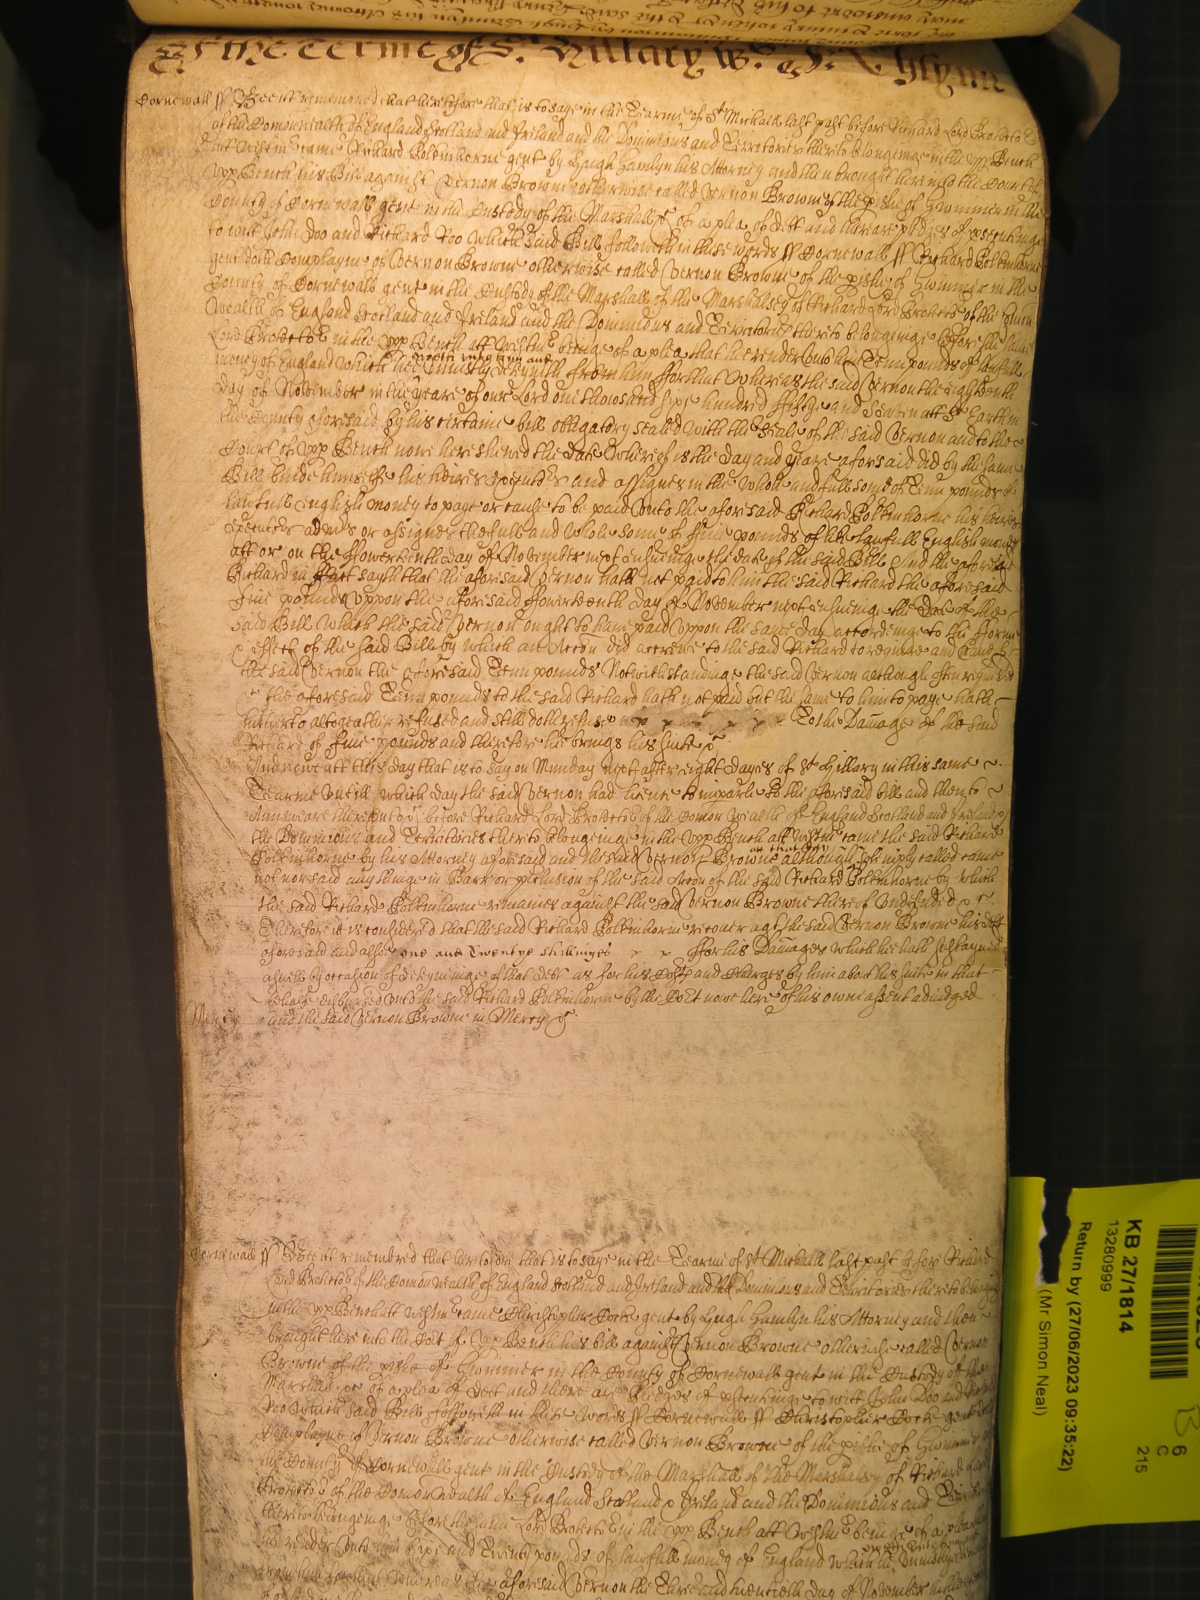 Of the Terme of St. Hillary 1658. Ro. Glynn
Cornewall ss Bee it remembred that heretofore that is to saye in the Tearme of St Michaell last past before Richard Lord Protector
of the Comonwealth of England Scotland and Ireland and the Dominions and Territories thereto belonginge in the upp Bench
att Westm came Richard Polkinhorne gent by Hugh Hamlyn his Attorney and then brought here into the Court of
Upp Bench his Bill against Vernon Browne otherwise called Vernon Browne of the pishe of Gwinner in the
County of Cornewall gent in the Custody of the Marshall &c of a plea of Dett and there are pledges of psecutinge
to witt John Doo and Richard Roo Which said Bill followeth in these words ss Cornewall ss Richard Polkinhorne
gent doth Complayne of Vernon Browne otherwise called Vernon Browne of the pishe of Gwinner in the
County of Cornewall gent in the Custody of the Marshall of the Marshalsey of Richard Lord Protector of the Comon
Wealth of England Scotland and Ireland and the Dominions and Territories thereto belonginge before the same
Lord Protector in the Upp Bench att Westm beinge of a plea that he render unto him Tenn pounds of lawfull
money of England which he oweth unto him and unjustly deteyneth from him Forthat Whereas the said Vernon the Eighteenth
day of November in the yeare of our Lord one thousand six hundred fiftye and Seaven att St Earth in
the County aforesaid by his certaine bill obligatory sealed with the Seale of the said Vernon and to the
Court of Upp Bench now here shewed the Date Whereof is the day and yeare aforesaid did by the same
Bill binde himselfe his heires Executors and assignes in the Whole and full some of Tenn pounds of
lawfull English money to paye or cause to be paid unto the aforesaid Richard Polkinhorne his heires
executors admrs or assignes the full and whole some of five pounds of like lawfull English money
att or on the Fowerteenth day of November next ensueinge the date of the said Bill And the aforesaid
Richard in fact sayth that the aforesaid Vernon hath not paid to him the said Richard the aforesaid
Five pounds uppon the aforesaid Fowerteenth day of November next ensueinge the Date of the
said Bill Which the said Vernon ought to have paid uppon the same day accordeinge to the Forme
& effect of the said Bill by which an Accon did accrewe to the said Richard to require and have of
the said Vernon the aforesaid Tenn pounds Notwithstandinge the said Vernon although often required
the aforesaid Tenn pounds to the said Richard hath not paid but the same to him to paye hath
hitherto altogeather refused and still doth refuse To the Damage of the said
Richard of five pounds and therefore he brings his suite &c
And now att this day that is to say on Munday next after eight dayes of St Hillary in this same
Tearme Untill which day the said Vernon had licence to imparle to the aforesaid bill and then to
Answeare thereunto &c before Richard Lord Protector of the Comon Wealth of England Scotland and Ireland &
the Dominions and Territories thereto belongeinge in the Upp Bench att Westm came the said Richard
Polkinhorne by his Attorney aforesaid and the said Vernon Browne att that day although solemply called came
not nor said any thinge in Barr or preclusion of the said Accon of the said Richard Polkinhorne by which
the said Richard Polkinhorne remaines against the said Vernon Browne thereof Undefended
Therefore it is considered that the said Richard Polkinhorne recover agt the said Vernon Browne his dett
aforesaid and allsoe one and Twentye shillinges For his Damages which he hath susteyned
aswell by occasion of deteyninge of that dett as for his Costs and Charges by him about his suite in that
behalfe disbursed unto the said Richard Polkinhorne by the Cort nowe here of his owne assent adiudged
Mercy And the said Vernon Browne in Mercy &c
Cornewall ss Bee it remembred that heretofore that is to saye in the Tearme of St Michaell last past before Richard
Lord Protector of the Comon Wealth of England Scotland and Ireland and the Dominions and Territories thereto belonginge
in the Upp Bench att Westm came Christopher Cock gent by Hugh Hamlyn his Attorney and then
brought here into the Cort of Upp Bench his bill against Vernon Browne otherwise called Vernon
Browne of the pishe of Gwinner in the County of Cornewall gent in the Custody of the
Marshall &c of a plea of Dett and there are pledges of psecutinge to witt John Doo and
Roo Which said Bill followeth in these words ss Cornewall ss Christopher Cock gent
Complayne of Vernon Browne otherwise called Vernon Browne of the pishe of Gwinner
the County of Cornewall gent in the Custody of the Marshall of the Marshalsey of Richard Lord
Protector of the Comon Wealth of England Scotland & Ireland and the Dominions and
thereto belonginge before the same Lord Protector in the Upp Bench att Westm beinge of a plea
he render unto him Sixe and Twenty pounds of lawfull money of England which he
aforesaid Vernon the Three and twentieth day of November
KB 27/1814
13280999
Return by (27/06/2023 09:35:22)
(Mr Simon Neal)
B 6
C
215